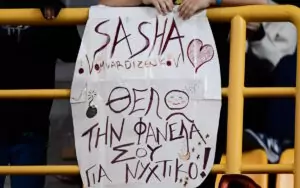 SASHA
VOMVARDIZENKOV
ΘΕΛΩ
ΤΗΝ ΦΑΝΕΛΑ
ΣΟΥ
ΓΙΑ ΝΥΧΤΙΚΟ!